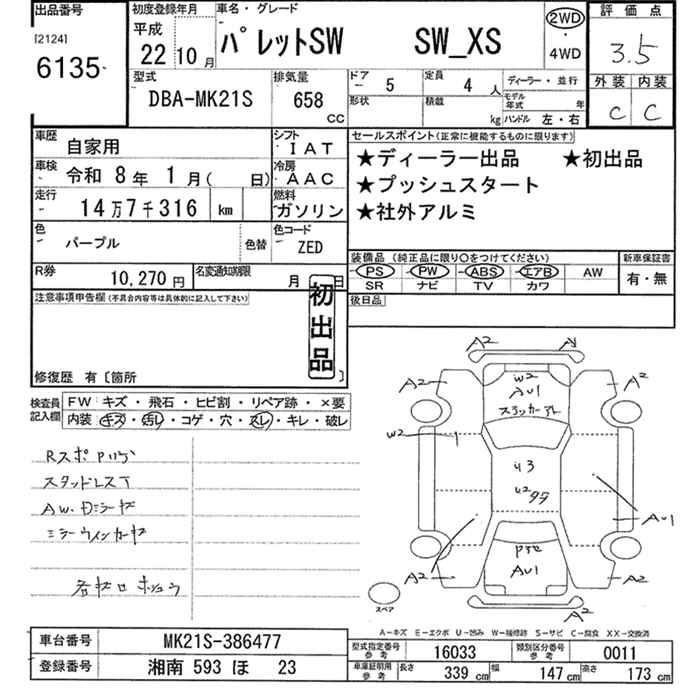 出品番号
[2124]
6135
初度登録年月
平成
22 10月
車名・グレード
パレットSW SW_XS
2WD
・
4WD
評価点
3.5
外装 内装
C C
型式
DBA-MK21S
排気量
658
CC
ドア
5
定員
4 人
ディーラー・並行
モデル年式 年
形状
積載
kg ハンドル 左・右
車歴
自家用
シフト
IAT
車検
令和 8年 1月( 日)
冷房
AAC
走行
14万7千316 km
燃料
ガソリン
色
パープル
色替
色コード
ZED
R券
10,270円
名変通知期限
月 日
セールスポイント(正常に機能するものに限ります)
★ディーラー出品 ★初出品
★プッシュスタート
★社外アルミ
装備品 (純正品に限り○をつけてください)
PS PW ABS エアB AW
SR ナビ TV カワ
新車保証書
有・無
後日品
注意事項申告欄(不具合内容等は具体的に記入して下さい)
初出品
修復歴 有〔箇所 〕
検査員記入欄
FW キズ・飛石・ヒビ割・リペア跡・×要
内装 キズ・汚レ・コゲ・穴・スレ・キレ・破レ
Rスポ
スタッドレスT
AW.Dミラーヤセ
ミラーウインカーヤセ
A2 A1
A2 W2 A2
AU1
W2
U3
U2
AU1
AU1
A2 A2
A2
スペア
A-キズ E-エクボ U-凹み W-補修跡 S-サビ C-腐食 XX-交換済
車台番号
MK21S-386477
登録番号
湘南 593 ほ 23
型式指定番号
参考
16033
類別区分番号
参考
0011
車庫証明用
参考
長さ 339 cm 幅 147 cm 高さ 173 cm